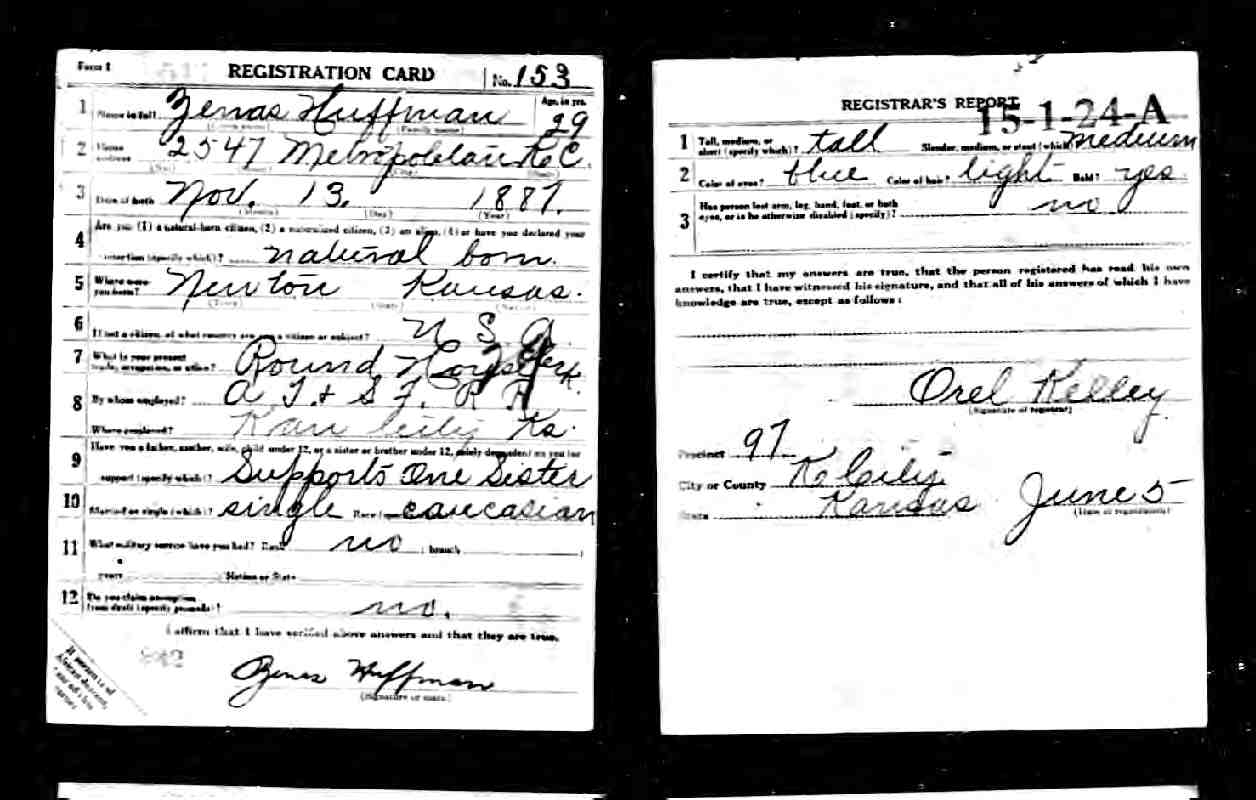 Form 1 REGISTRATION CARD No. 153
1 Name in full Zenas Huffman Age, in yrs. 29
(Given name) (Family name)
2 Home address 2547 Metropolitan K.C.
(No.) (Street) (City) (State)
3 Date of birth Nov. 13. 1887.
(Month) (Day) (Year)
4 Are you (1) a natural-born citizen, (2) a naturalized citizen, (3) an alien, (4) or have you declared your
intention (specify which)? natural born.
5 Where were you born? Newton Kansas.
(Town) (State) (Nation)
6 If not a citizen, of what country are you a citizen or subject? U S A
7 What is your present trade, occupation, or office? Round House Clerk
8 By whom employed? A T. & S F. R R
Where employed? Kan City Ks.
9 Have you a father, mother, wife, child under 12, or a sister or brother under 12, solely dependent on you for
support (specify which)? Supports One Sister
10 Married or single (which)? single Race caucasian
11 What military service have you had? Rank no ; branch ;
years Nation or State
12 Do you claim exemption from draft (specify grounds)? no.
I affirm that I have verified above answers and that they are true.
Zenas Huffman
(Signature or mark)
If person is of African descent,
REGISTRAR'S REPORT
15-1-24-A
1 Tall, medium, or short (specify which)? tall Slender, medium, or stout (which)? medium
2 Color of eyes? blue Color of hair? light Bald? yes
3 Has person lost arm, leg, hand, foot, or both eyes, or is he otherwise disabled (specify)? no
I certify that my answers are true, that the person registered has read his own
answers, that I have witnessed his signature, and that all of his answers of which I have
knowledge are true, except as follows:
Orel Kelley
(Signature of registrar)
Precinct 97
City or County K C City
State Kansas June 5
(Date of registration)